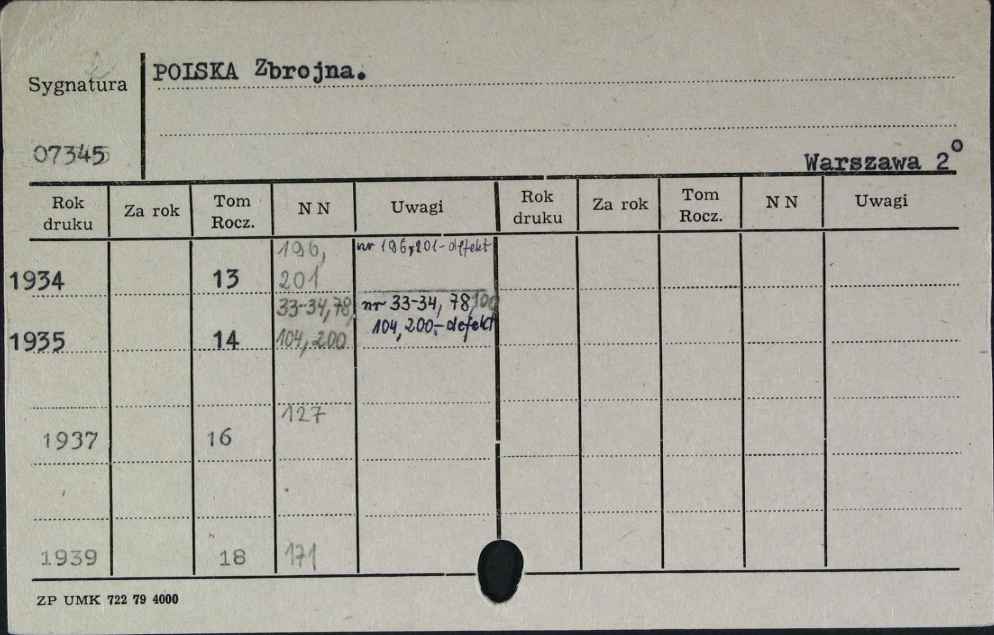 Sygnatura
POLSKA Zbrojna.
07345
Warszawa 2°
Rok druku Za rok Tom Rocz. N N Uwagi Rok druku Za rok Tom Rocz. N N Uwagi
196, nr 196, 201 - defekt
1934 13 201
33-34, 78, nr 33-34, 78, 100
104, 200 - defekt
1935 14 104, 200
127
1937 16
1939 18 171
ZP UMK 722 79 4000